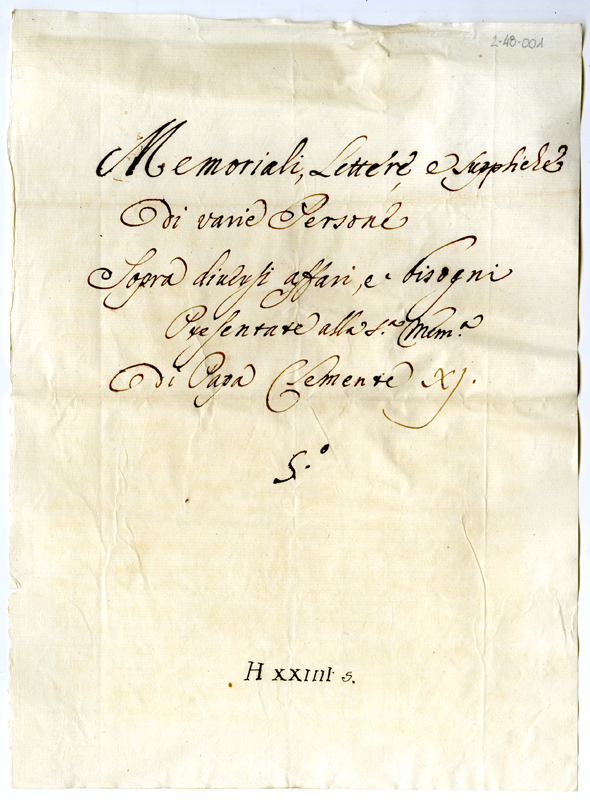 2-48-001
Memoriali, Lettere e Suppliche
Di varie Persone
Sopra diversi affari, e bisogni
Presentate alla S.ta Mem.a
Di Papa Clemente XJ.
5.o
H XXIIII 5.